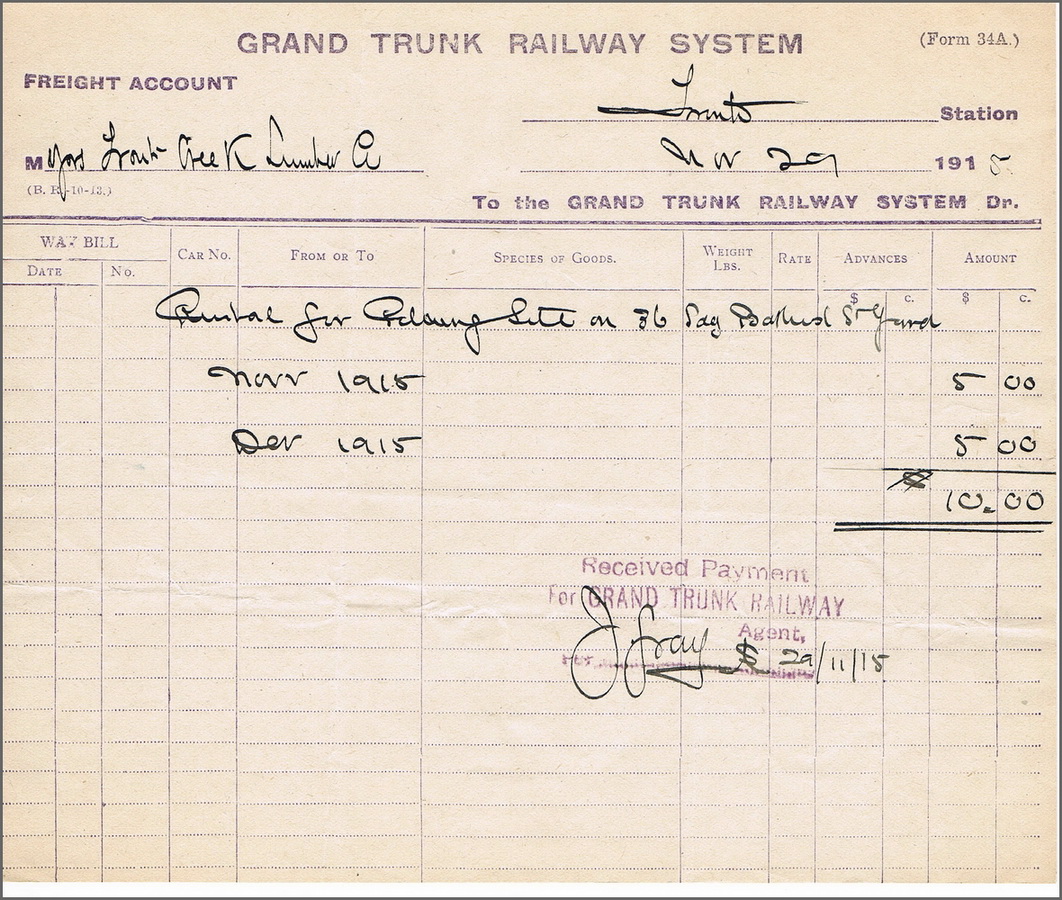 GRAND TRUNK RAILWAY SYSTEM (Form 34A.)
FREIGHT ACCOUNT
Toronto Station
M Trout Creek Lumber Co Nov 29 1915
(B. B.-10-13.)
To the GRAND TRUNK RAILWAY SYSTEM Dr.
WAY BILL
DATE No. CAR No. FROM OR TO SPECIES OF GOODS. WEIGHT LBS. RATE ADVANCES AMOUNT
$ c. $ c.
Rental for Site on 36 Bathurst St Yard
Novr 1915 5 00
Dec 1915 5 00
$ 10.00
Received Payment
For GRAND TRUNK RAILWAY
Agent,
J Gray 29/11/15